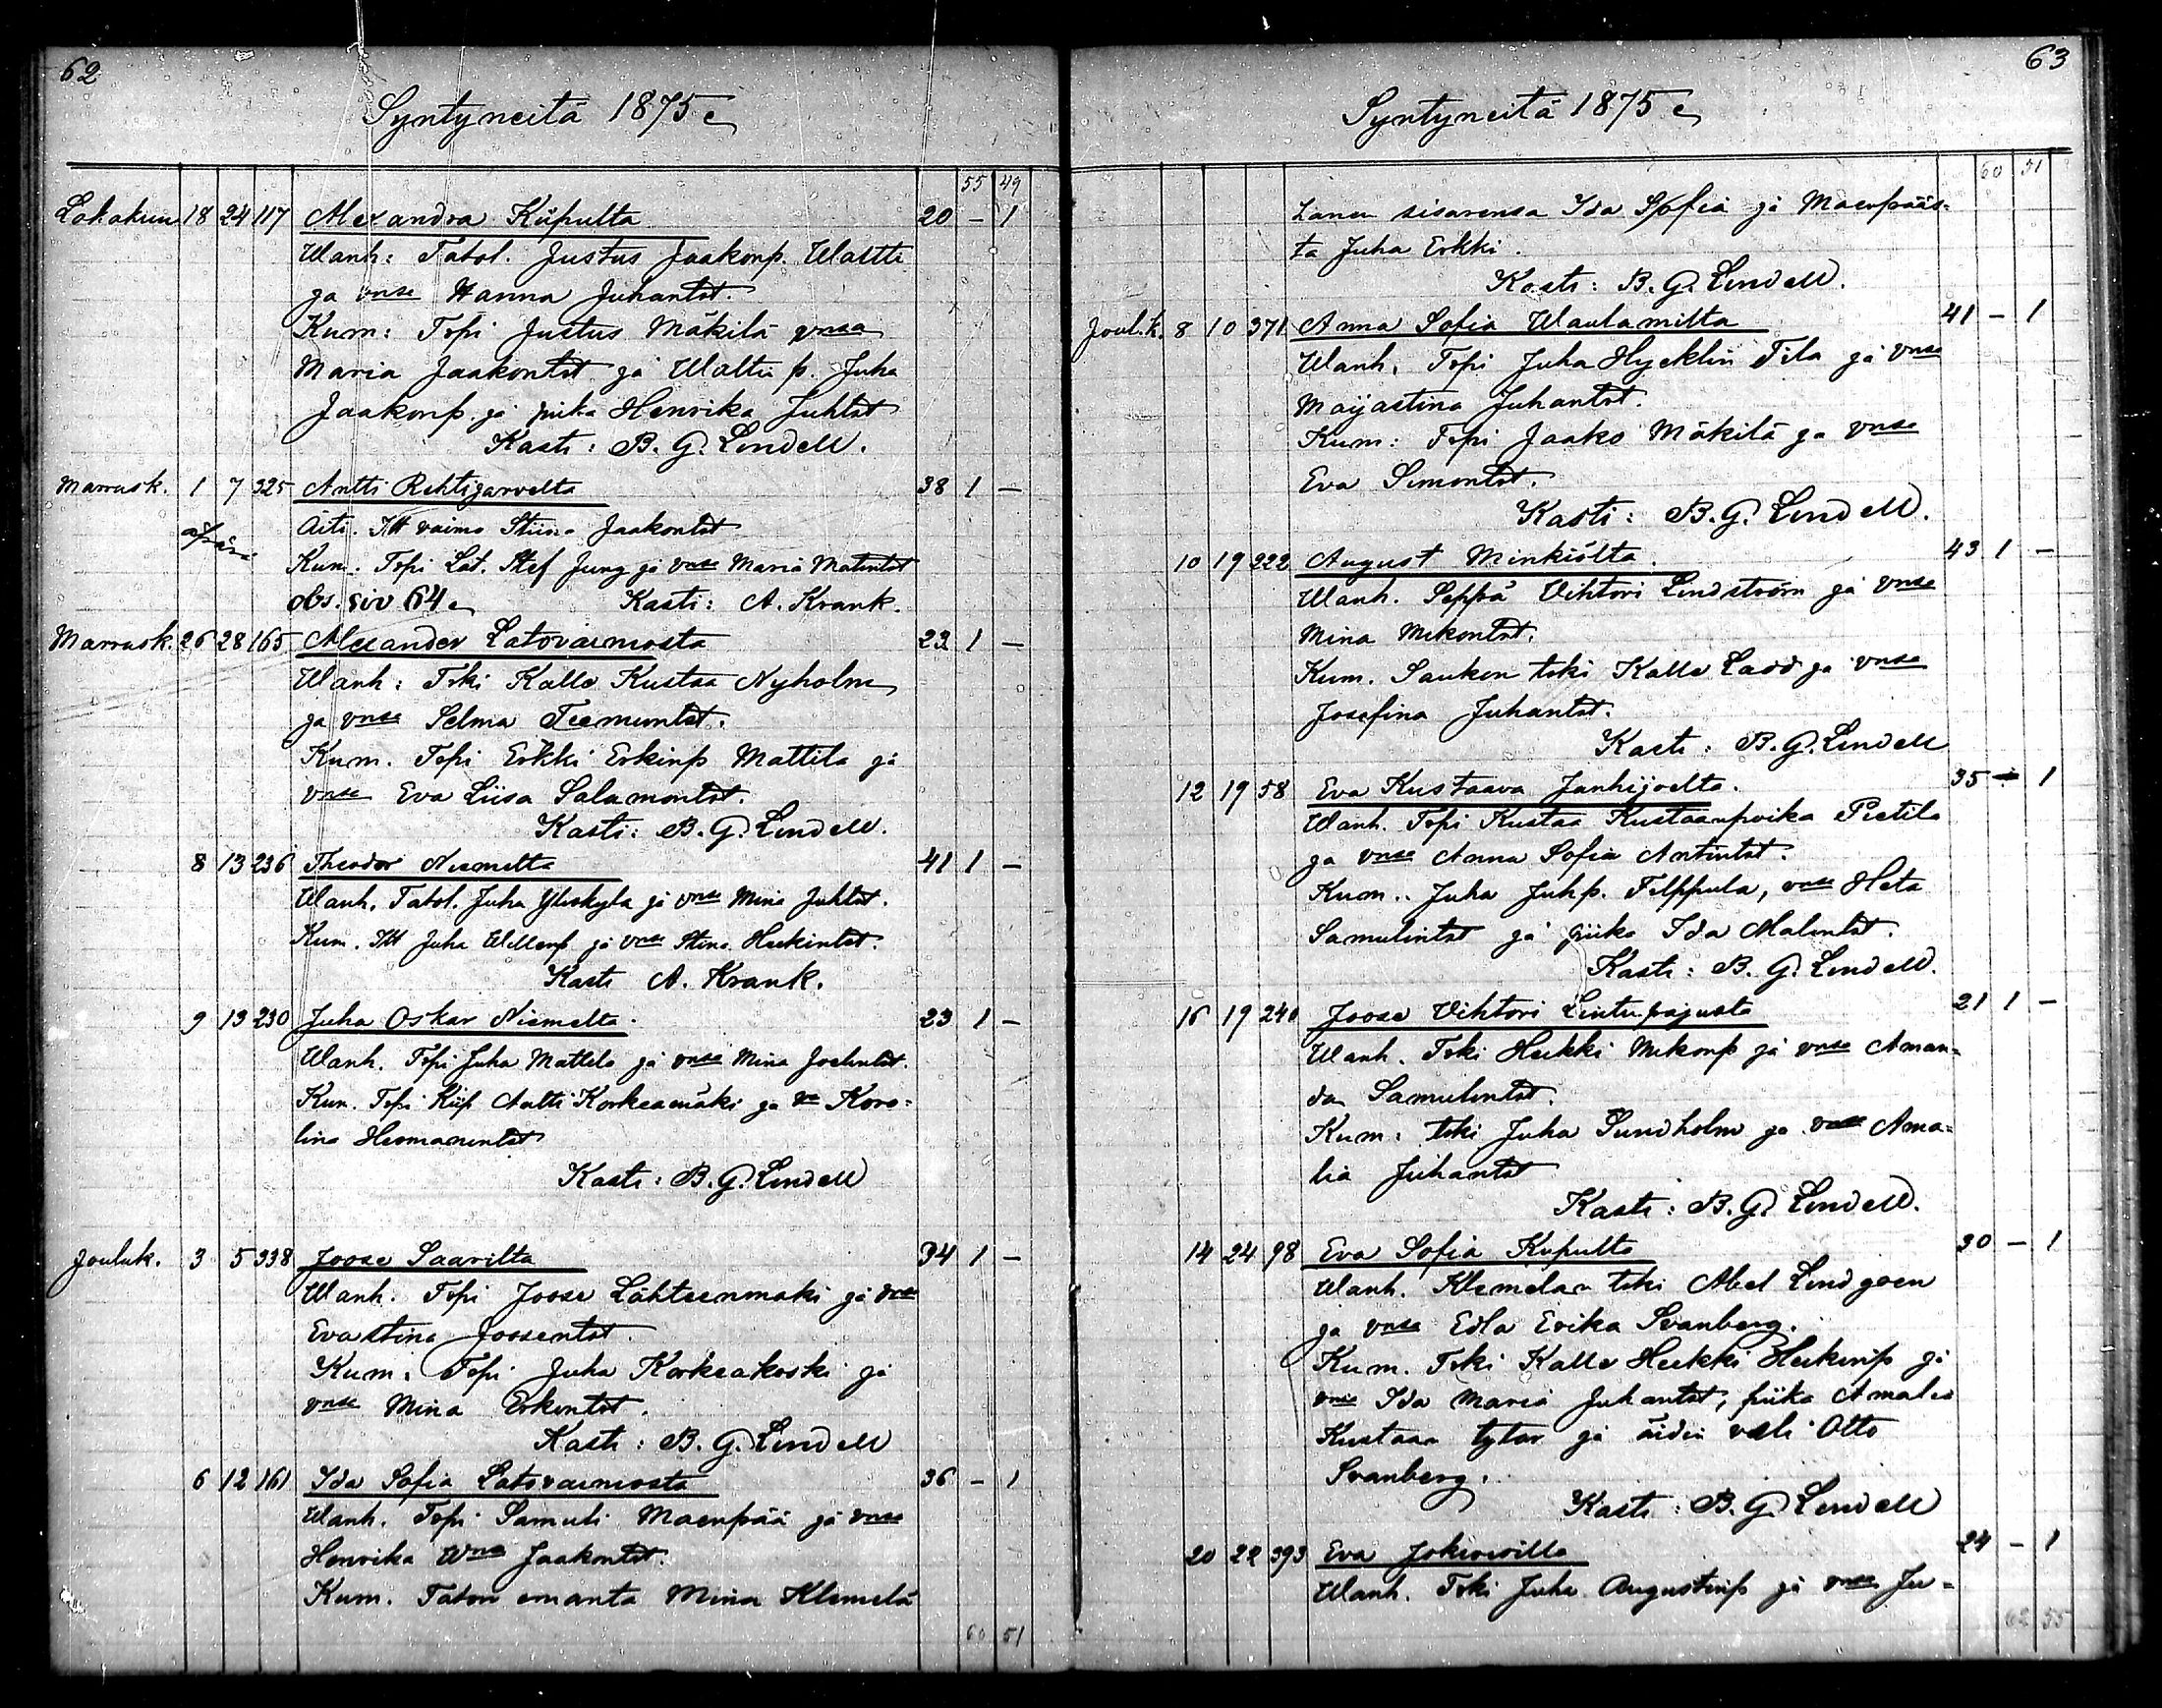 62
Syntyneitä 1875
55 49
Lokakuu 18 24 117 Alexandra Kiipulta 20 – 1
Wanh: Tatol. Justus Jaakonp. Waltti
ja vnsa Hanna Juhantst.
Kum: Tspi Justus Mäkilä vnsa
Maria Jaakontst ja Walttu p. Juha
Jaakonp. ja piika Henrika Juhtst
Kasti: B. G. Lindell.
Marrask. 1 7 325 Antti Rehtijarvelta 38 1 –
äpärä Äiti. Itt vaimo Stiina Jaakontst
Kum. Tspi Lat. Stef Jung ja vnsa Maria Matintst
obs. siv 64 Kasti: A. Krank.
Marrask. 26 28 165 Alexander Latovainiosta 23 1 –
Wanh: Trki Kalle Kustaa Nyholm
ja vnsa Selma Teemuntst.
Kum. Tspi Erkki Erkinp Mattila ja
vnsa Eva Liisa Salamontst.
Kasti: B. G. Lindell.
8 13 236 Theodor Niemelta 41 1 –
Wanh. Tatol. Juha Yliskyla ja vnsa Mina Juhtst.
Kum. Itt Juha Willenp ja vnsa Stina Heikintst.
Kasti A. Krank.
9 13 230 Juha Oskar Niemelta. 23 1 –
Wanh. Tspi Juha Mattila ja vnsa Mina Joelintst.
Kum. Tspi Kiip Antti Korkeamäki ja va Karo=
lina Hermanintst
Kasti: B. G. Lindell
Jouluk. 3 5 338 Joose Saarilta 34 1 –
Wanh. Tspi Joose Lähteenmaki ja vnsa
Evastina Joosentst.
Kum. Tspi Juha Korkeakoski ja
vnsa Mina Erkintst.
Kasti: B. G. Lindell
6 12 161 Ida Sofia Latovainiosta 36 – 1
Wanh. Tspi Samuli Maenpää ja vnsa
Henrika Wnsa Jaakontst.
Kum. Taton emanta Mina Klemelä
60 51
63
Syntyneitä 1875
60 51
hanen sisarensa Ida Sofia ja Maenpääs=
ta Juha Erkki.
Kasti: B. G. Lindell.
Joul.k. 8 10 371 Anna Sofia Waulamilta 41 – 1
Wanh. Tspi Juha Hyeklin Tila ja vnsa
Maijastina Juhantst.
Kum: Tspi Jaako Mäkilä ja vnsa
Eva Simontst.
Kasti: B. G. Lindell.
10 19 222 August Minkiölta. 43 1 –
Wanh. Seppä Vihtori Lindström ja vnsa
Mina Mikontst.
Kum. Sauken trki Kalle Ladd ja vnsa
Josefina Juhantst.
Kasti: B. G. Lindell
12 19 58 Eva Kustaava Janhijoelta. 35 – 1
Wanh. Tspi Kustaa Kustaanpoika Pietila
ja vnsa Anna Sofia Antintst.
Kum. Juha Juhp. Filppula, vnsa Heta
Samulintst ja piika Ida Malintst.
Kasti: B. G. Lindell.
16 19 240 Joose Vihtori Lintupajusta 21 1 –
Wanh. Trki Heikki Mikonp ja vnsa Aman=
da Samulintst.
Kum: trki Juha Sundholm ja vnsa Ama=
lia Juhantst
Kasti: B. G. Lindell.
14 24 98 Eva Sofia Kiipulta 30 – 1
Wanh. Klemelan trki Abel Lindgren
ja vnsa Edla Erika Svanberg.
Kum. Trki Kalle Heikki Heikinp ja
vnsa Ida Maria Juhantst, piika Amalia
Kustaan tytar ja äidin veli Otto
Svanberg.
Kasti: B. G. Lindell
20 22 393 Eva Jokioisilla 24 – 1
Wanh. Trki Juha Augustinp ja vnsa Ju=
62 55